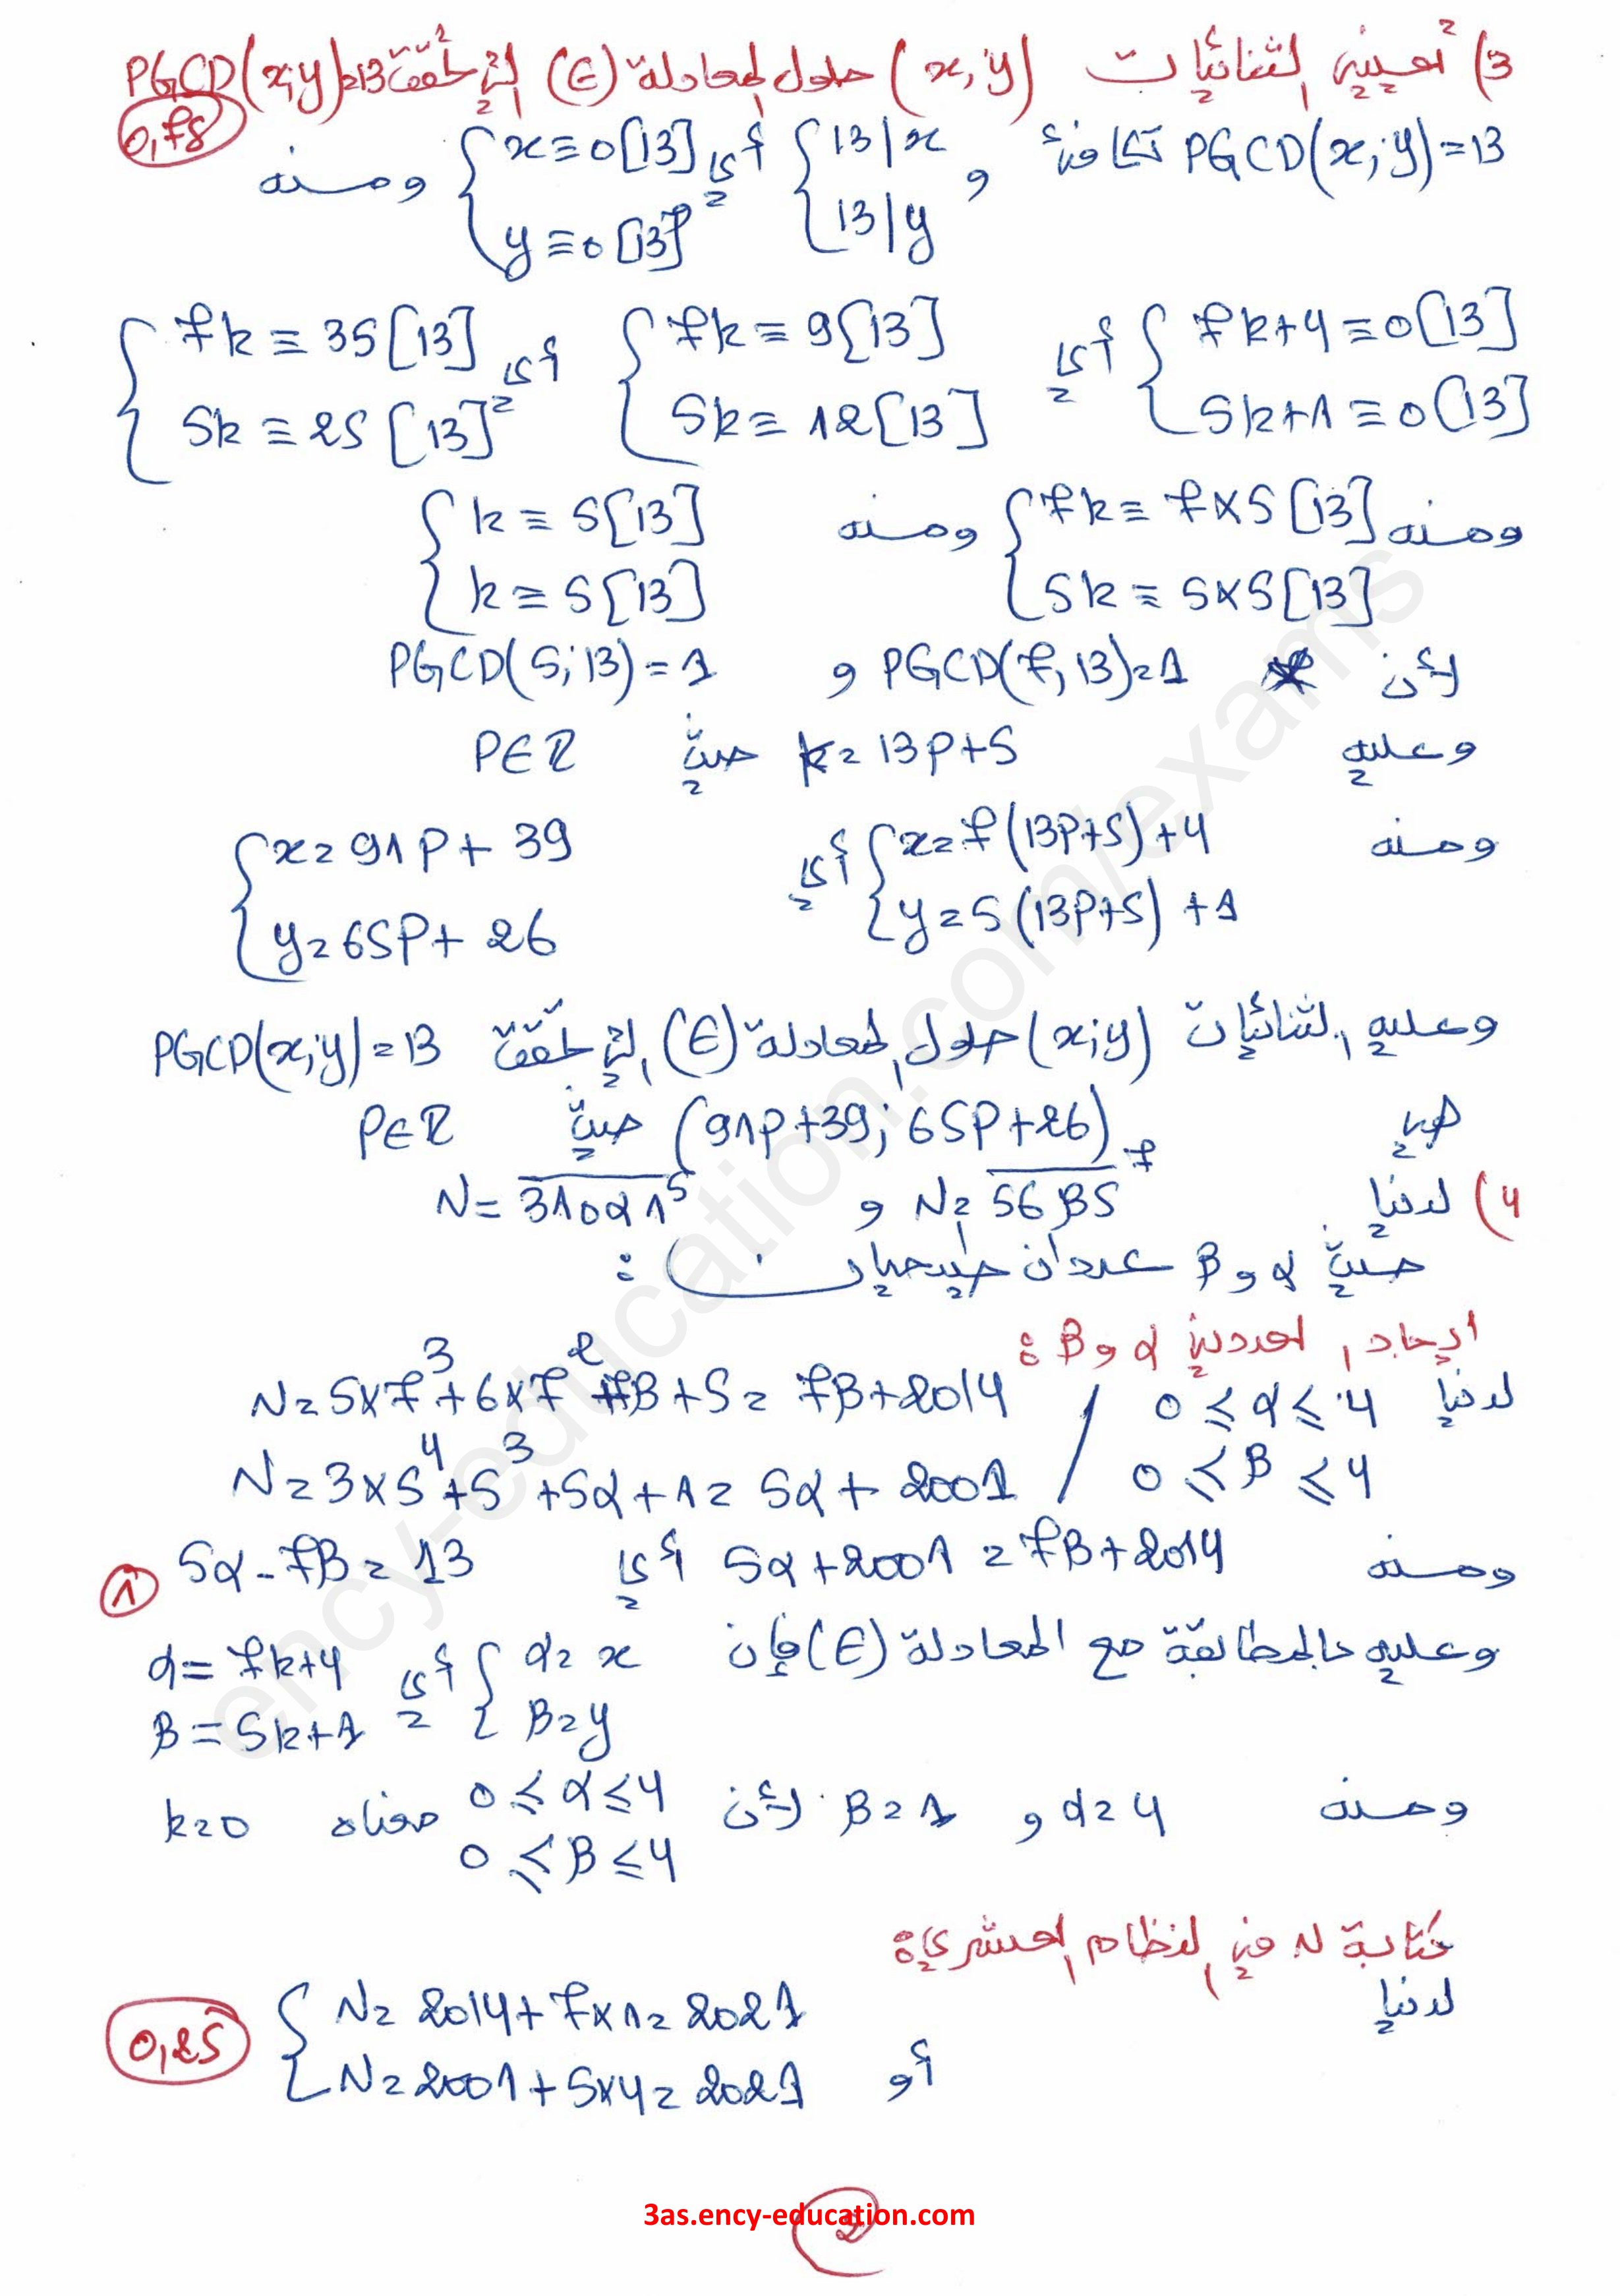 3) تعيين الثنائيات (x,y) حلول المعادلة (E) التي تحقق PGCD(x;y)=13
0,75
PGCD(x;y)=13 تكافئ { 13|x و 13|y أي { x≡0[13] y≡0[13] ومنه
{ 7k+4≡0[13] 5k+1≡0[13] أي { 7k≡9[13] 5k≡12[13] أي { 7k≡35[13] 5k≡25[13]
ومنه { 7k≡7×5[13] 5k≡5×5[13] ومنه { k≡5[13] k≡5[13]
لأن PGCD(7,13)=1 و PGCD(5;13)=1
وعليه k=13p+5 حيث P∈Z
ومنه { x=7(13p+5)+4 y=5(13p+5)+1 أي { x=91p+39 y=65p+26
وعليه الثنائيات (x;y) حلول المعادلة (E) التي تحقق PGCD(x;y)=13
هي (91p+39; 65p+26) حيث P∈Z
4) لدينا N=56β5⁷ و N=310α1⁵
حيث α و β عددان طبيعيان :
ايجاد العددين α و β :
لدينا 0≤α≤4 / N=5×7³+6×7²+7β+5=7β+2014
0≤β≤4 / N=3×5⁴+5³+5α+1=5α+2001
ومنه 5α+2001=7β+2014 أي 5α-7β=13
1
وعليه بالمطابقة مع المعادلة (E) فإن { α=x β=y أي α=7k+4 β=5k+1
ومنه α=4 و β=1 لأن 0≤α≤4 0≤β≤4 معناه k=0
كتابة N في النظام العشري :
لدينا
{ N=2014+7×1=2021
أو N=2001+5×4=2021
0,25
ency-education.com/exams
3as.ency-education.com
2